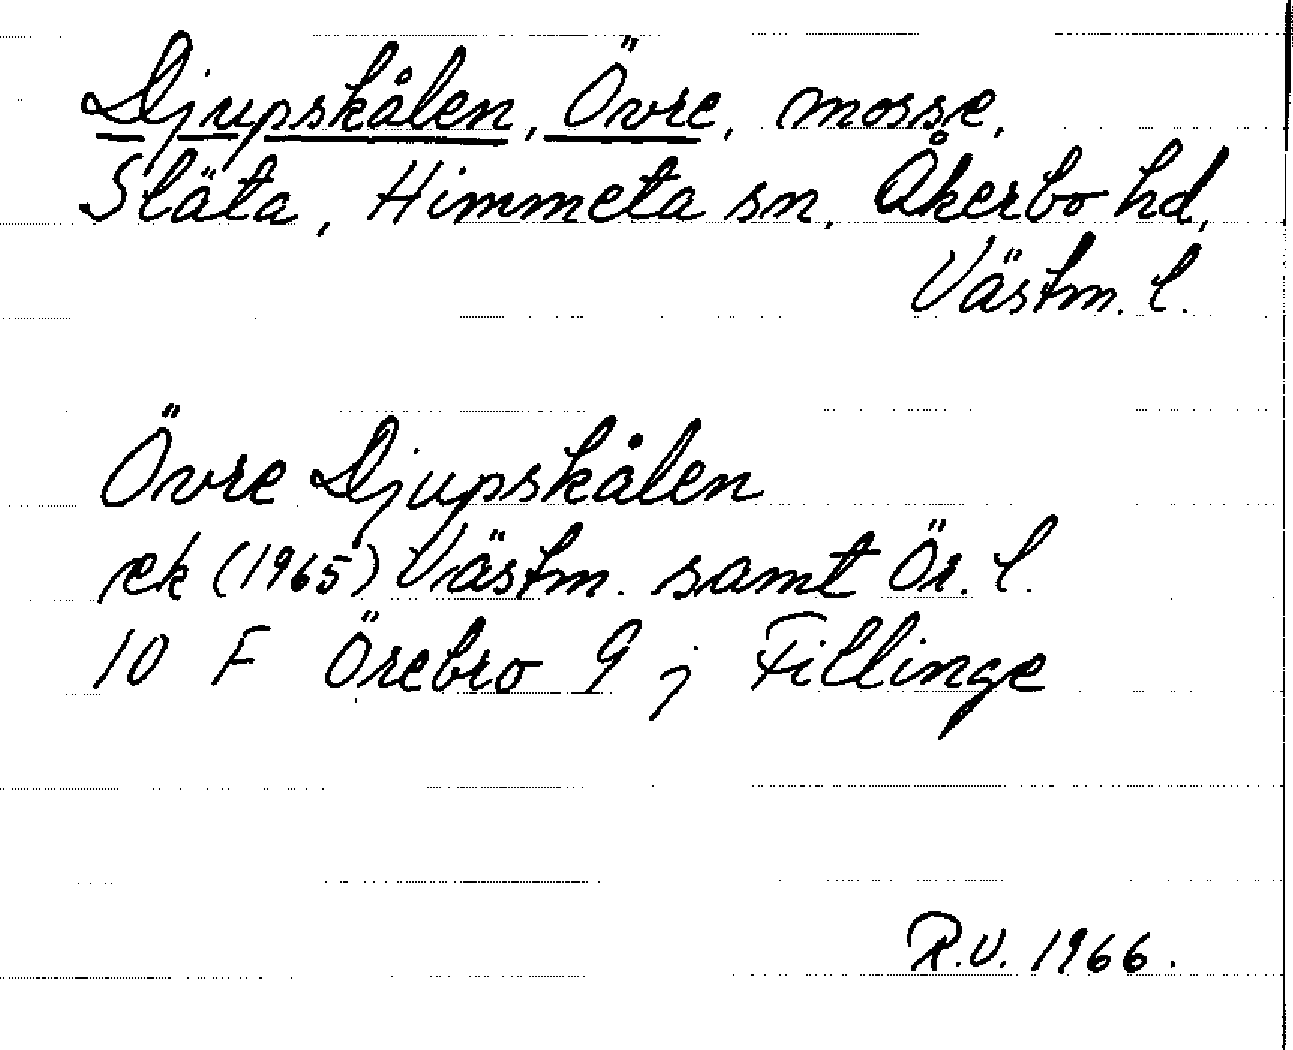 Djupskålen, Övre, mosse,
Släta, Himmeta sn, Åkerbo hd,
Västm. l.
Övre Djupskålen
ek (1965) Västm. samt Ör. l.
10 F Örebro 9 j Fillinge
R.V. 1966.